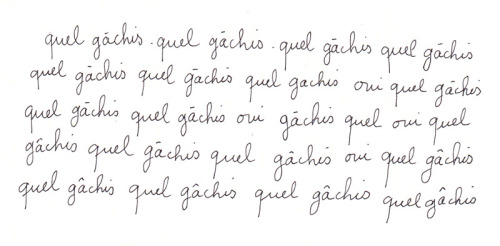 quel gâchis. quel gâchis. quel gâchis quel gâchis
quel gâchis quel gâchis quel gachis oui quel gâchis
quel gâchis quel gâchis oui gâchis quel oui quel
gâchis quel gâchis quel gâchis oui quel gâchis
quel gâchis quel gâchis quel gâchis quel gâchis